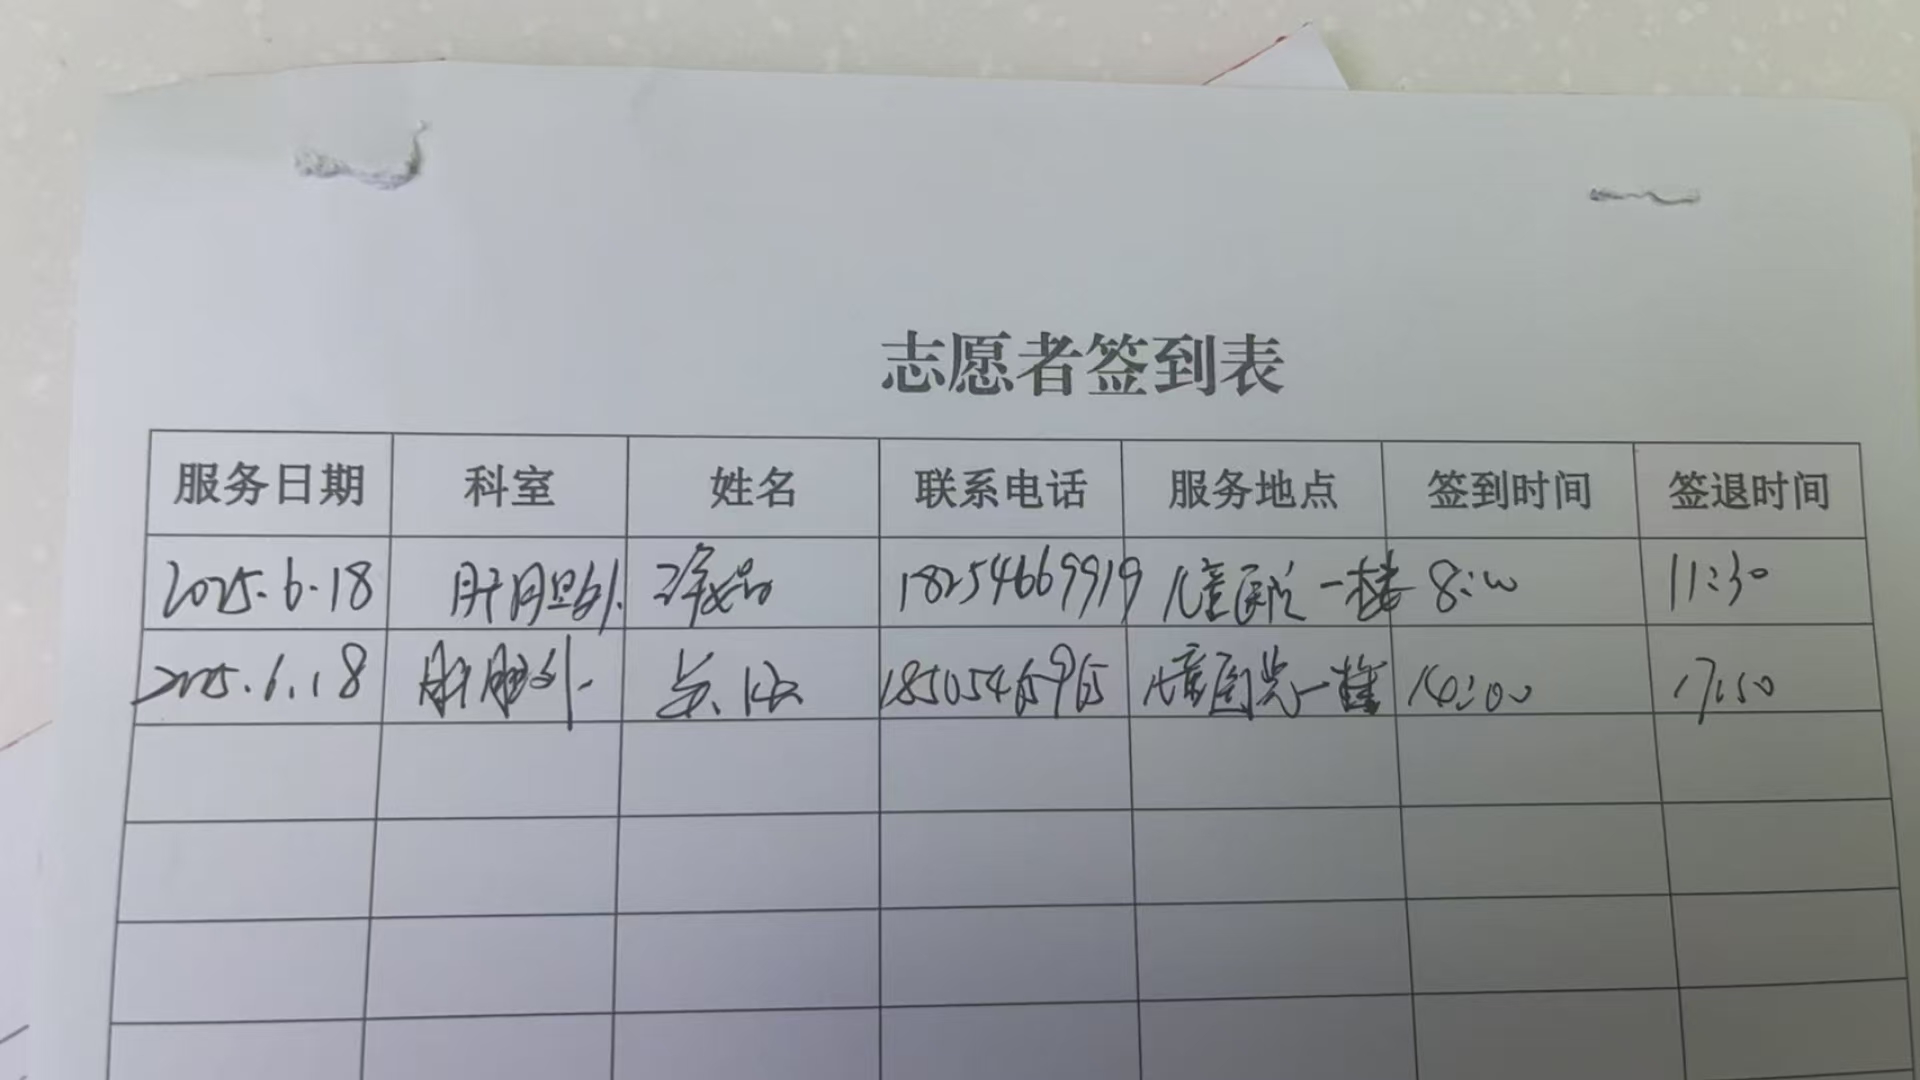 志愿者签到表
服务日期 科室 姓名 联系电话 服务地点 签到时间 签退时间
2025.6.18 肝胆外 18254669919 儿童医院一楼 8:00 11:30
2025.6.18 肝胆外 儿童医院一楼 14:00 17:30